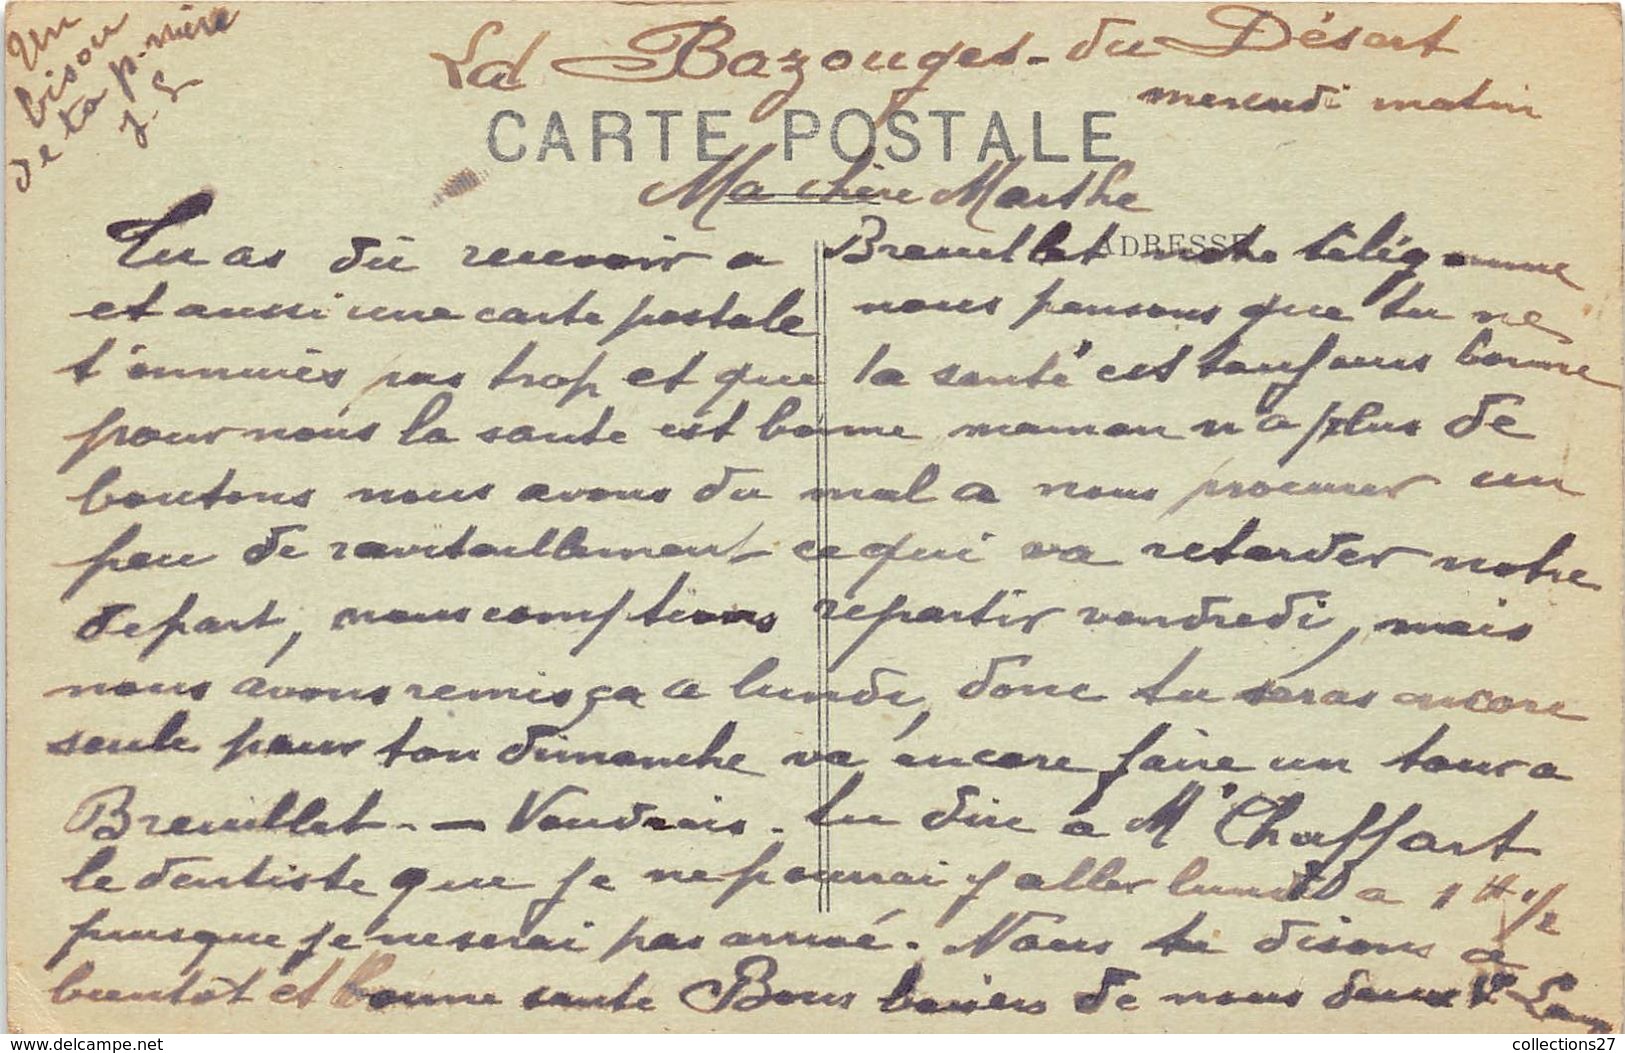 Un
bisou
de ta p. mère
J. S
La Bazouges-du Désert
mercredi matin
CARTE POSTALE
Ma chère Marthe
ADRESSE
Tu as dû recevoir a Breuillet notre télégramme
et aussi une carte postale nous pensons que tu ne
t'ennuies pas trop et que la santé est toujours bonne
pour nous la sante est bonne maman n'a plus de
boutons nous avons du mal a nous procurer un
peu de ravitaillement ce qui va retarder notre
depart, nous comptions repartir vendredi, mais
nous avons remis ça a lundi, donc tu seras encore
seule pour ton dimanche va encore faire un tour a
Breuillet. — Voudrais-tu dire à Mr Chaffart
le dentiste que je ne pourrai y aller lundi a 1 H 1/2
puisque je ne serai pas arrivé. Nous te disons a
bientôt et bonne sante Bons baisers de nous deux
collections27